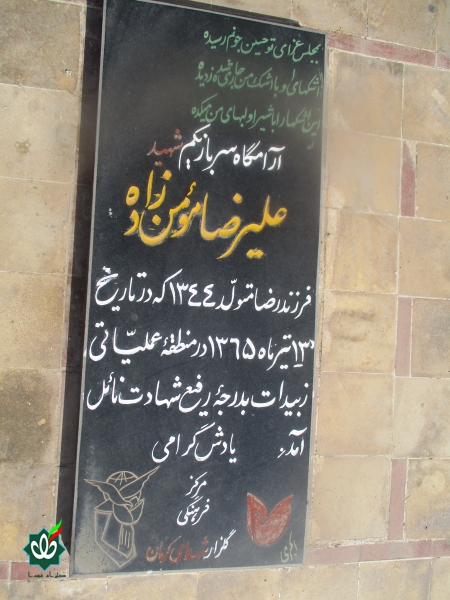 بمجلس عزای تو حسین جونم رسیده
اشکهای او با اشک من
این اشکها را با شیر او لبهای من
آرامگاه سرباز یکم شهید
علیرضا مؤمن زاده
فرزند رضا متولد ۱۳۴۴ که در تاریخ
۱۳ تیر ماه ۱۳۶۵ در منطقهٔ عملیّاتی
زبیدات بدرجهٔ رفیع شهادت نائل
آمد. یادش گرامی
مرکز
فرهنگی
گلزار شهدای کرمان